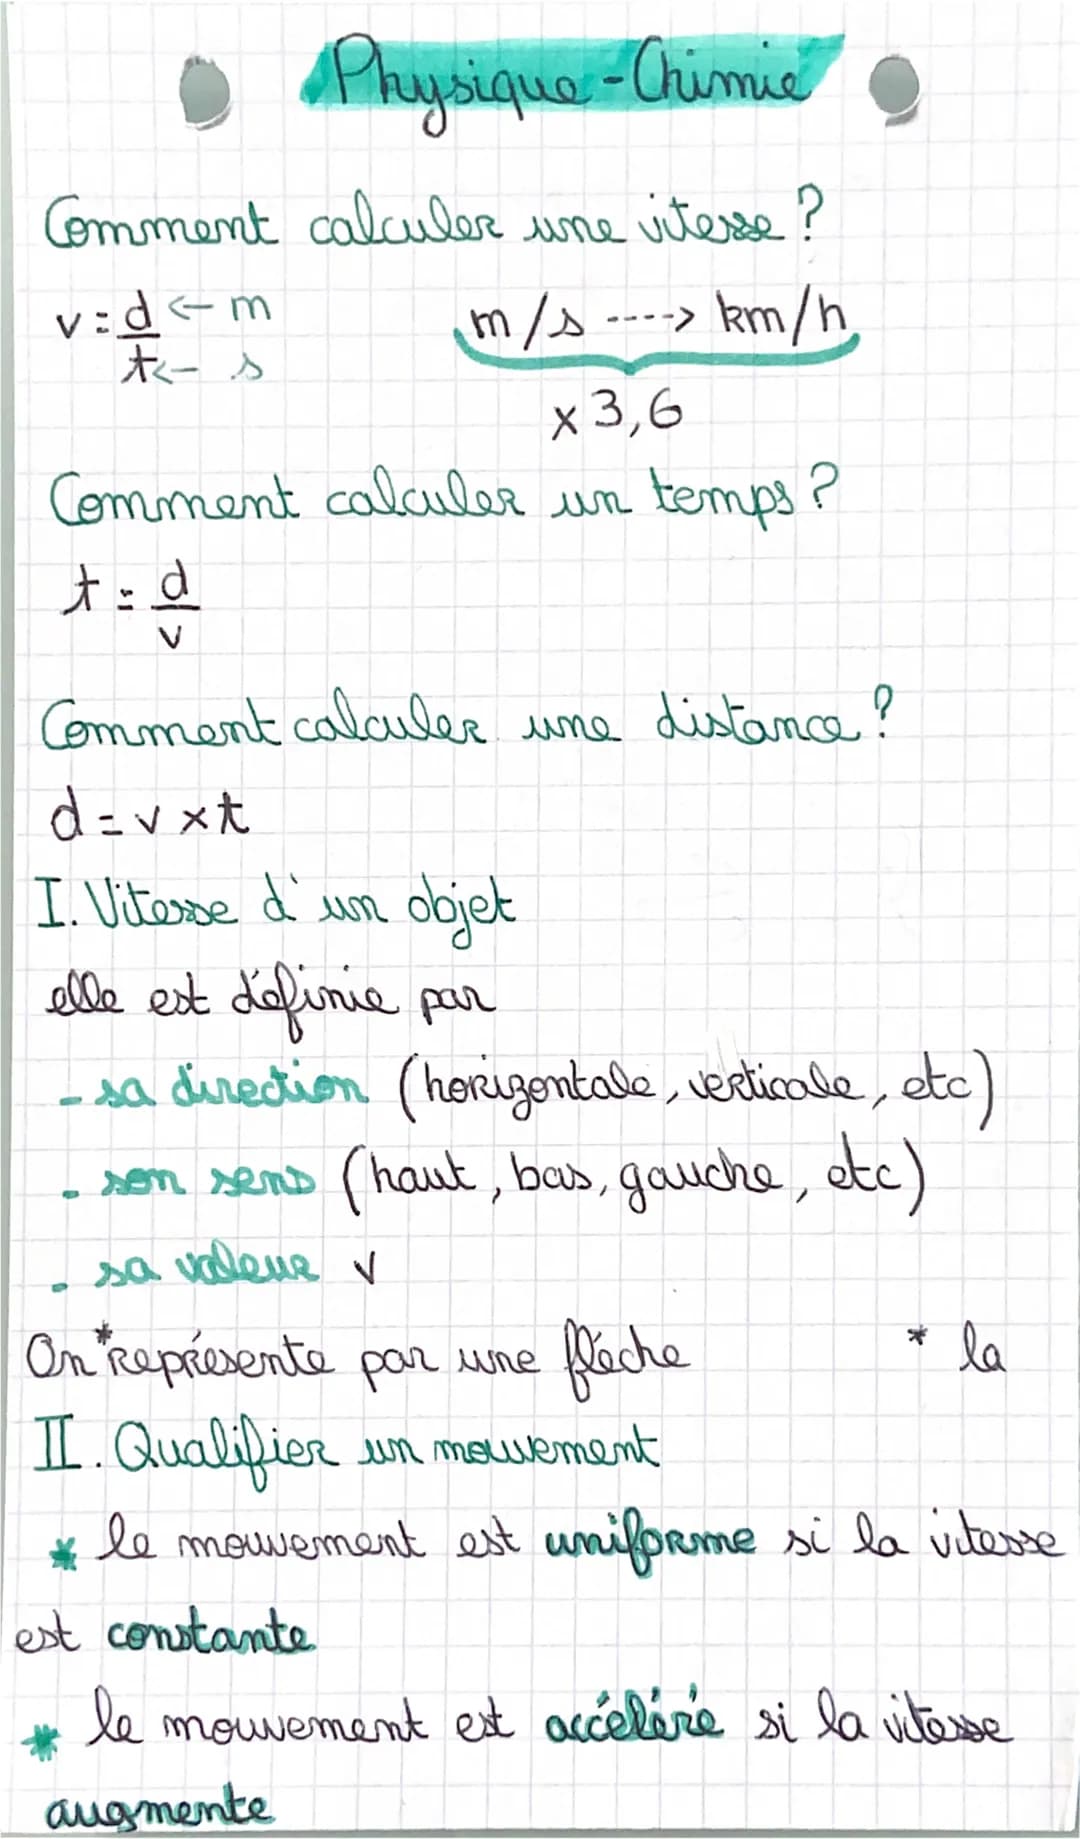 Physique-Chimie
Comment calculer une vitesse ?
v = d ← m
t ← s
m/s ----> km/h
x 3,6
Comment calculer un temps ?
t = d
v
Comment calculer une distance ?
d = v x t
I. Vitesse d'un objet
elle est définie par
- sa direction (horizontale, verticale, etc)
- son sens (haut, bas, gauche, etc)
- sa valeur v
On * représente par une fléche * la
II. Qualifier un mouvement
* le mouvement est uniforme si la vitesse
est constante
* le mouvement est accéléré si la vitesse
augmente